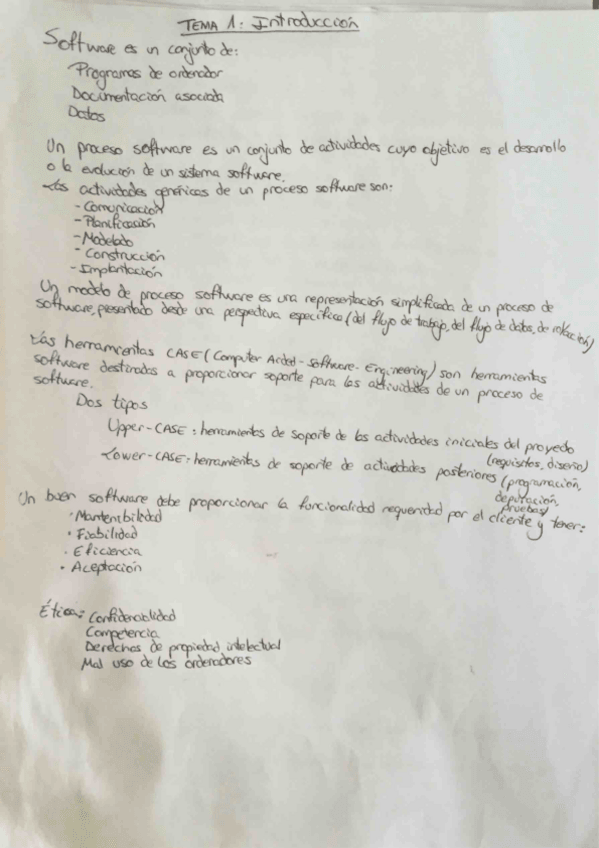 TEMA 1: Introducción
Software es un conjunto de:
Programas de ordenador
Documentación asociada
Datos
Un proceso software es un conjunto de actividades cuyo objetivo es el desarrollo
o la evolución de un sistema software.
Las actividades genéricas de un proceso software son:
- Comunicación
- Planificación
- Modelado
- Construcción
- Implantación
Un modelo de proceso software es una representación simplificada de un proceso de
software, presentado desde una perspectiva específica (del flujo de trabajo, del flujo de datos, de rol/acción)
Las herramientas CASE (Computer Aided-Software-Engineering) son herramientas
software destinadas a proporcionar soporte para las actividades de un proceso de
software.
Dos tipos
Upper-CASE: herramientas de soporte de las actividades iniciales del proyecto
(requisitos, diseño)
Lower-CASE: herramientas de soporte de actividades posteriores (programación,
depuración,
pruebas)
Un buen software debe proporcionar la funcionalidad requerida por el cliente y tener:
· Mantenibilidad
· Fiabilidad
· Eficiencia
· Aceptación
Ética: Confidencialidad
Competencia
Derechos de propiedad intelectual
Mal uso de los ordenadores